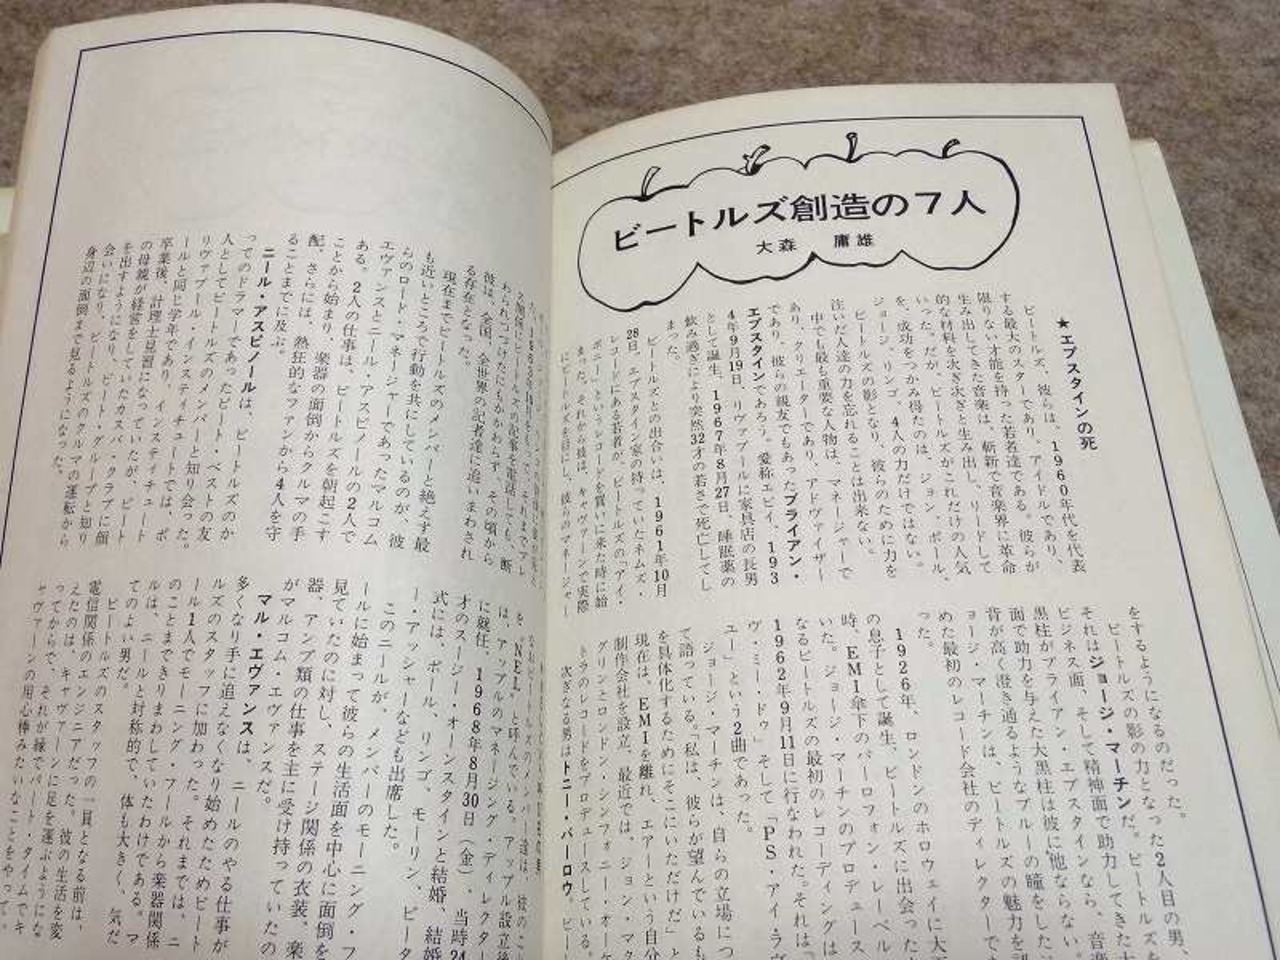 ビートルズ創造の７人
大森　庸雄
★エプスタインの死
ビートルズ、彼らは、1960年代を代表
する最大のスターであり、アイドルであり、
限りない才能を持った若者達である。彼らが
生み出してきた音楽は、斬新で音楽界に革命
的な材料を次ぎ次ぎと生み出し、リードして
いった。だが、ビートルズがこれだけの人気
を、成功をつかみ得たのは、ジョン、ポール、
ジョージ、リンゴ、4人の力だけではない。
ビートルズの影となり、彼らのために力を
注いだ人達の力を忘れることは出来ない。
中でも最も重要な人物は、マネージャーで
あり、クリエーターであり、アドヴァイザー
であり、彼らの親友でもあったブライアン・
エプスタインであろう。愛称エピイ、193
4年9月19日、リヴァプールに家具店の長男
として誕生、1967年8月27日、睡眠薬の
飲み過ぎにより突然32才の若さで死亡してし
まった。
ビートルズとの出合いは、1961年10月
28日、エプスタイン家の持っていたネムズ・
レコードにある若者が、ビートルズの「マイ・
ボニー」というレコードを買いに来た時に始
まった。それから彼は、キャヴァーンで実際
にビートルズを目にし、彼のマネージャー
をするようになるのだった。
ビートルズの影の力となった2人目の男、
それはジョージ・マーチンだ。ビートルズを
ビジネス面、そして精神面で助力してきた大
黒柱がブライアン・エプスタインなら、音楽
面で助力を与えた大黒柱は彼に他ならない。
背が高く澄き通るようなブルーの瞳をした
ョージ・マーチンは、ビートルズの魅力を認
めた最初のレコード会社のディレクターで
った。
1926年、ロンドンのホロウェイに大工
の息子として誕生、ビートルズに出会った
時、EMI傘下のパーロフォン・レーベル
いた。ジョージ・マーチンのプロデュース
なるビートルズの最初のレコーディングは
1962年9月11日に行なわれた。それは「
ヴ・ミー・ドゥ」そして「PS・アイ・ラヴ
ユー」という2曲であった。
ジョージ・マーチンは、自らの立場につ
て語っている。「私は、彼らが望んでいるも
を具体化するためにそこにいただけだ」と
現在は、EMIを離れ、エアーという自分
制作会社を設立、最近では、ジョン・マク
グリンとロンドン・シンフォニー・オーケ
トラのレコードをプロデュースしている。
次ぎなる男はトニー・バーロウ。ビー
わられつづけたにもかかわらず、その頃から
彼は、全国、全世界の記者達に追いまわされ
る存在となった。
現在までビートルズのメンバーと絶えず最
も近いところで行動を共にしているのが、彼
らのロード・マネージャーであったマルコム
エヴァンスとニール・アスピノールの2人で
ある。2人の仕事は、ビートルズを朝起こす
ことから始まり、楽器の面倒からクルマの手
配、さらには、熱狂的なファンから4人を守
ることまでに及ぶ。
ニール・アスピノールは、ビートルズのか
ってのドラマーであったピート・ベストの友
人としてビートルズのメンバーと知り会った。
リヴァプール・インスティチュートでは、ポ
ールと同じ学年であり、インスティチュート
卒業後、計理士見習になっていたが、ピート
の母親が経営をしていたカスバ・クラブに顔
を出すようになり、ビート・グループと知り
会いになり、ビートルズのクルマの運転から
身辺の面倒まで見るようになった。
を"NEL"と呼んでいる。アップル設立後
は、アップルのマネージング・ディレクター
に就任、1968年8月30日（金）、当時24
才のスージー・オーンスタインと結婚、結婚
式には、ポール、リンゴ、モーリン、ピータ
ー・アッシャーなども出席した。
このニールが、メンバーのモーニング・フ
ールに始まって彼らの生活面を中心に面倒を
見ていたのに対し、ステージ関係の衣装、楽
器、アンプ類の仕事を主に受け持っていたの
がマルコム・エヴァンスだ。
マル・エヴァンスは、ニールのやる仕事が
多くなり手に追えなくなり始めたためビート
ルズのスタッフに加わった。それまでは、ニ
ール1人でモーニング・フールから楽器関係
のことまできりまわしていたわけである。マ
ルは、ニールと対称的で、体も大きく、気だ
てのよい男だ。
ビートルズのスタッフの一員となる前は、
電信関係のエンジニアだった。彼の生活を変
えたのは、キャヴァーンに足を運ぶようにな
ってからで、それが縁でパート・タイムでキ
ャヴァーンの用心棒みたいなことをやって、